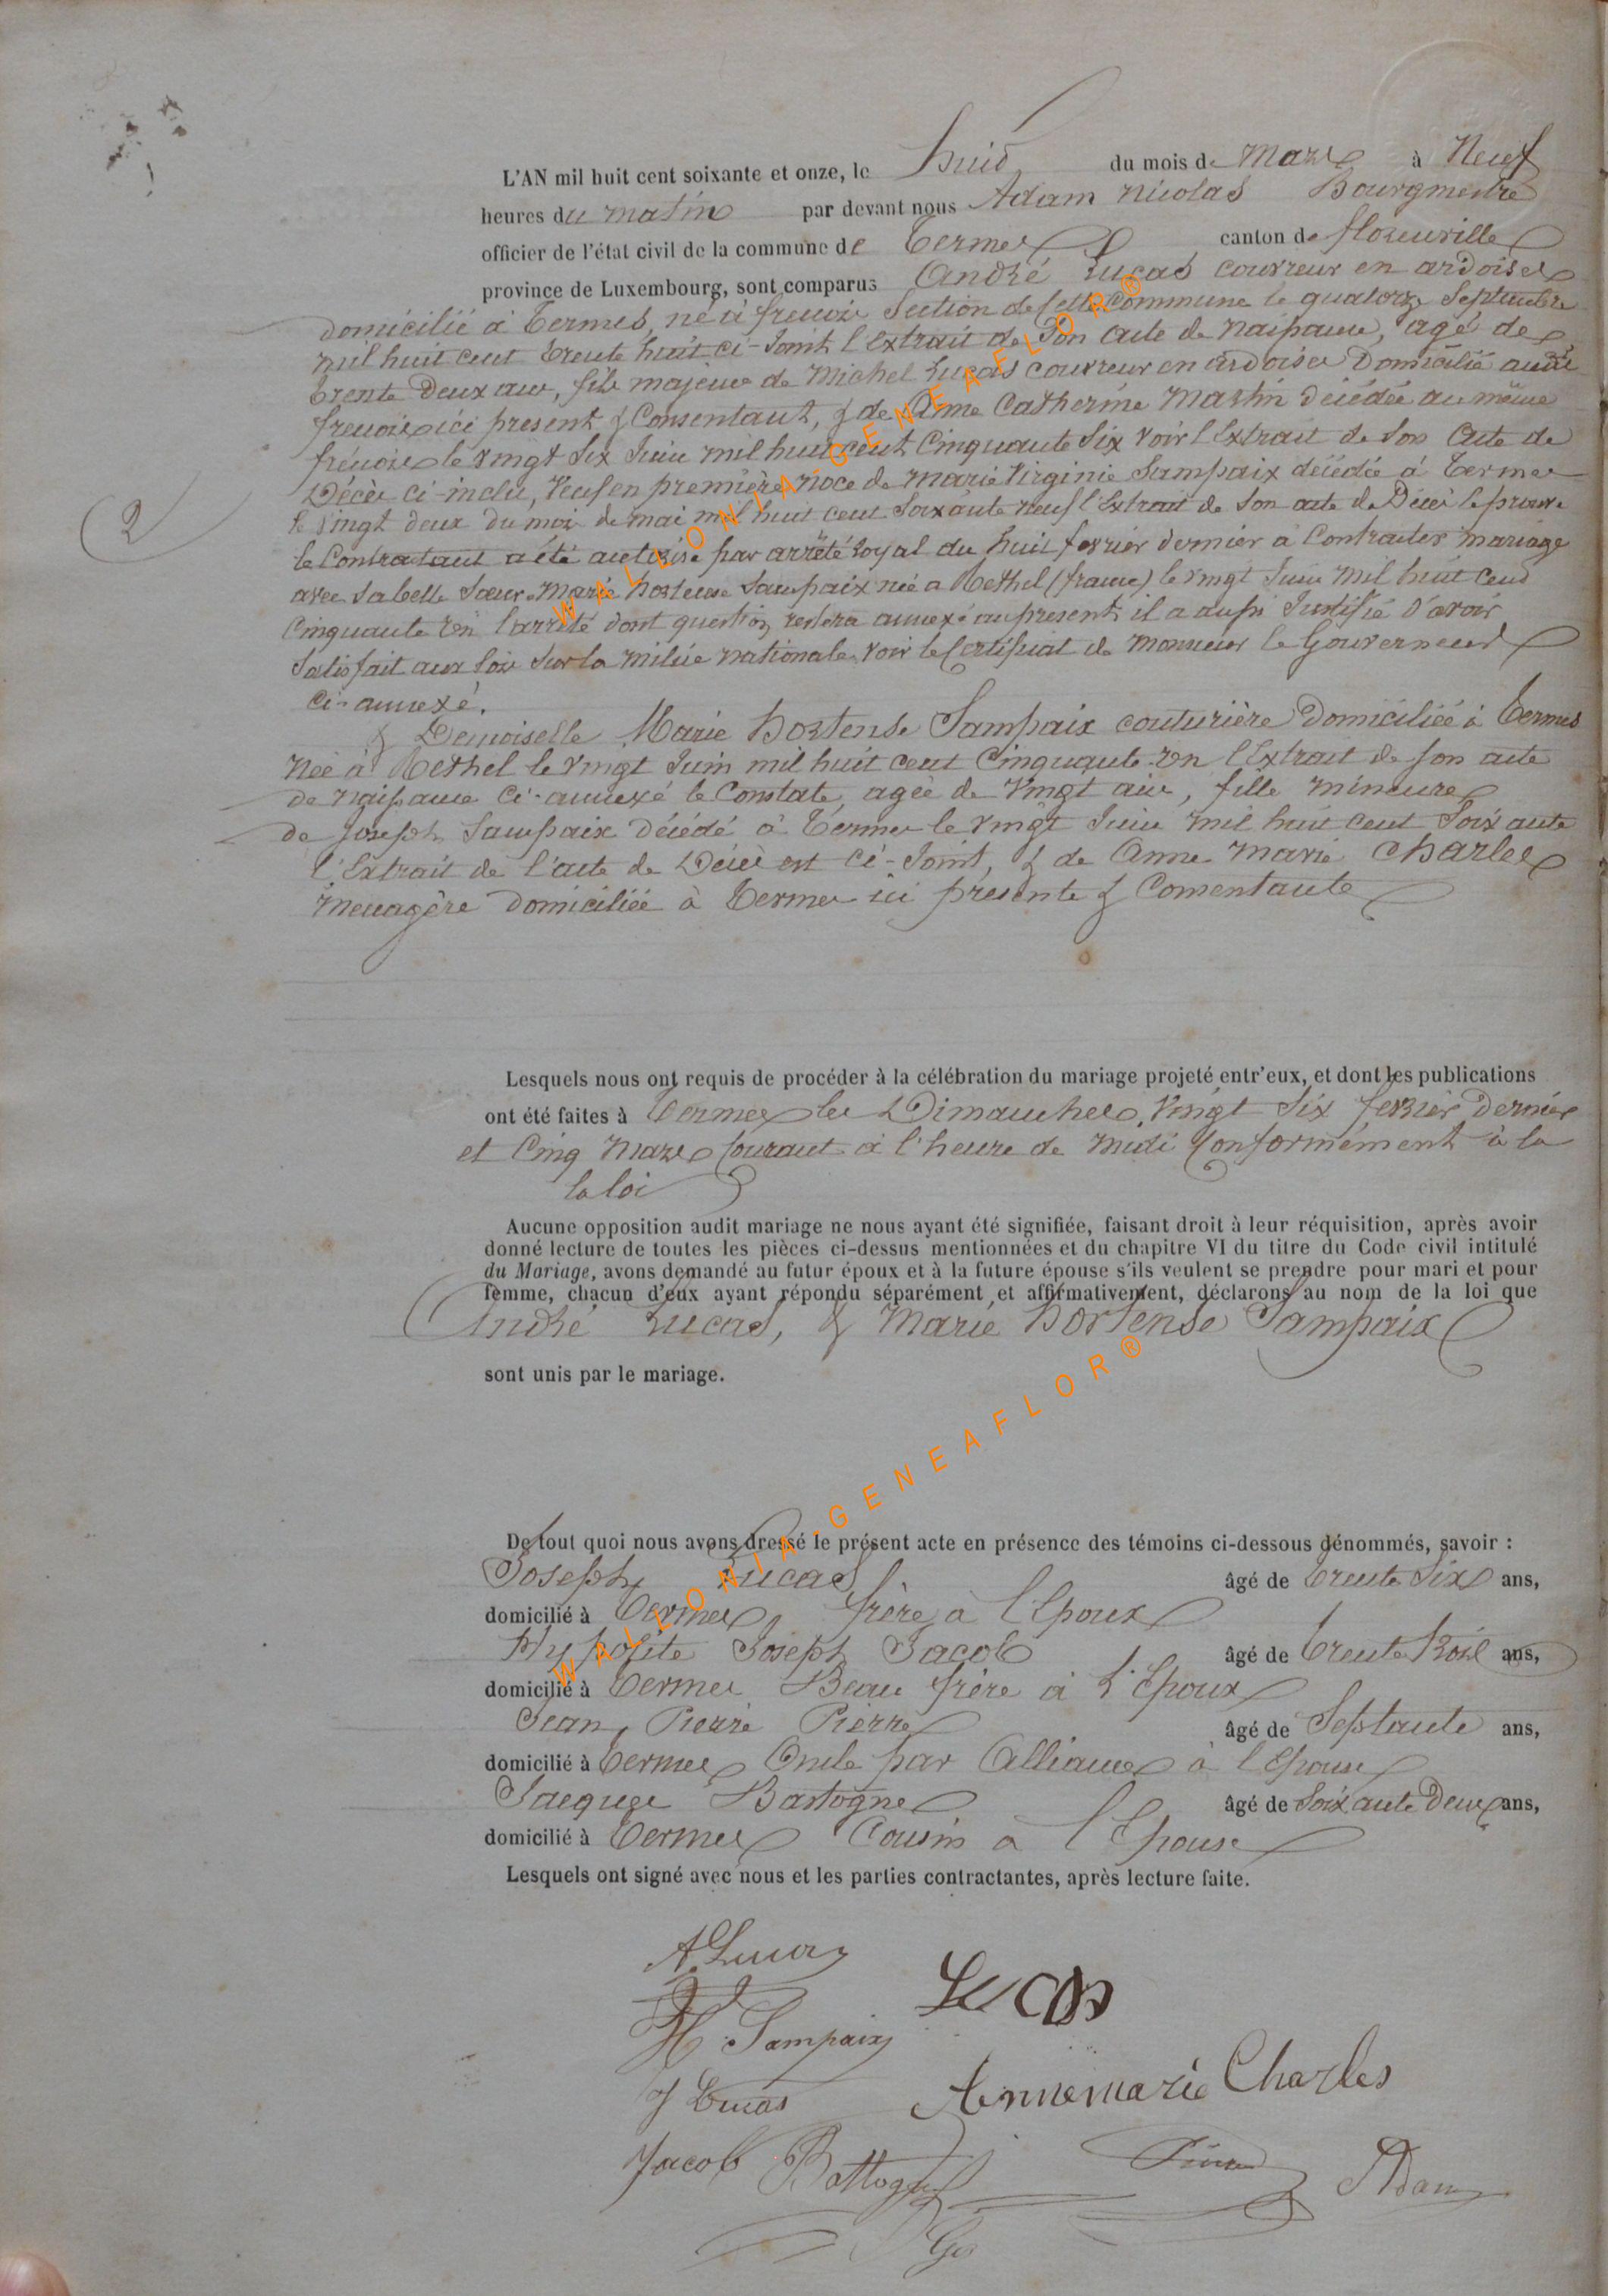 L'AN mil huit cent soixante et onze, le huit du mois de Mars à Neuf
heures du matin par devant nous Adam Nicolas Bourgmestre
officier de l'état civil de la commune de Termes canton de florenville
province de Luxembourg, sont comparus André Lucas couvreur en ardoises
domicilié à Termes, né à frenois Section de cette Commune le quatorze Septembre
mil huit cent trente huit ci-Joint l'Extrait de Son acte de naissance, agé de
trente Deux ans, fils majeur de Michel Lucas couvreur en ardoises Domicilié audit
frenois ici present & Consentant, & de Anne Catherine Martin décédée au même
frénois le vingt Six Juin mil huit cent Cinquante Six voir l'Extrait de Son Acte de
Décès ci-inclus, Veuf en première noce de Marie Virginie Sampaix décédée à Termes
le vingt deux du mois de mai mil huit cent Soixante neuf l'Extrait de Son acte de Décès le prouve
2
le Contractant a été autorisé par arrêté Royal du huit fevrier dernier à Contracter mariage
avec Sa belle Sœur Marie hortense Sampaix née a Rethel (france) le vingt Juin Mil huit Cent
Cinquante un l'arrêté dont question restera annexé au present, il a aussi Justifié d'avoir
Satisfait aux lois Sur la milice nationale, voir le Certificat de Monsieur le Gouverneur
Ci-annexé.
& Demoiselle Marie Hortense Sampaix couturière Domiciliée à Termes
Née à Rethel le vingt Juin mil huit cent Cinquante un l'Extrait de son acte
de naissance Ci-annexé le Constate, agée de Vingt ans, fille mineure
de Joseph Sampaix décédé à Termes le vingt Juin mil huit cent Soixante
l'Extrait de l'acte de Décès est Ci-Joint, & de Anne Marie Charles
menagère Domiciliée à Termes ici présente & Consentante
Lesquels nous ont requis de procéder à la célébration du mariage projeté entr'eux, et dont les publications
ont été faites à Termes les Dimanches, Vingt Six fevrier Dernier
et Cinq Mars Courant à l'heure de midi Conformément à la
la loi
Aucune opposition audit mariage ne nous ayant été signifiée, faisant droit à leur réquisition, après avoir
donné lecture de toutes les pièces ci-dessus mentionnées et du chapitre VI du titre du Code civil intitulé
du Mariage, avons demandé au futur époux et à la future épouse s'ils veulent se prendre pour mari et pour
femme, chacun d'eux ayant répondu séparément et affirmativement, déclarons au nom de la loi que
André Lucas, & Marie Hortense Sampaix
sont unis par le mariage.
De tout quoi nous avons dressé le présent acte en présence des témoins ci-dessous dénommés, savoir :
Joseph Lucas âgé de trente Six ans,
domicilié à Termes, frère à l'Epoux
Hypolite Joseph Jacob âgé de trente trois ans,
domicilié à Termes Beau frère à L'Epoux
Jean, Pierre Pierre âgé de Septante ans,
domicilié à Termes Oncle par Alliance à l'Epouse
Jacques Bastogne âgé de Soixante Deux ans,
domicilié à Termes Cousin à l'Epouse
Lesquels ont signé avec nous et les parties contractantes, après lecture faite.
A. Lucas
Lucas
H Sampaix
J Lucas
Annemarie Charles
Jacob
Bastogne
Pierre
Adam
WALLONIA-GENEAFLOR®
WALLONIA-GENEAFLOR®